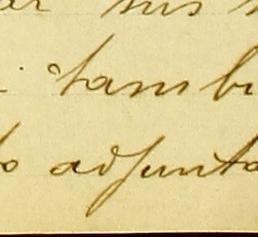 sus
tambi
adjunta